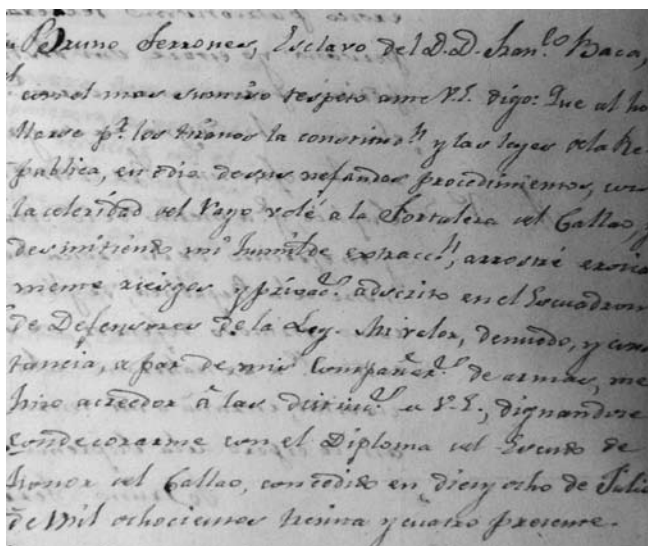 Bruno Terrones, Esclavo del D.D. Fran.co Baca,
con el mas sumiso respeto ante V.E. digo: Que al ho
llarse p.r los tiranos la constituc.n y las leyes de la Re
publica, en odio de sus nefandos procedimientos, con
la celeridad del Rayo volé a la Fortaleza del Callao, y
desmitiendo mi humilde extracc.n, arrostré eroica
mente riesgos y privac.s adscrito en el Escuadron
de Defensores de la Ley. Mi valor, denuedo, y cons
tancia, a par de mis Compañer.s de armas, me
hizo acreedor â las de V.E., dignandose
condecorarme con el Diploma del Escudo de
Honor del Callao, concedido en diez y ocho de Julio
de Mil ochocientos treinta y cuatro presente.